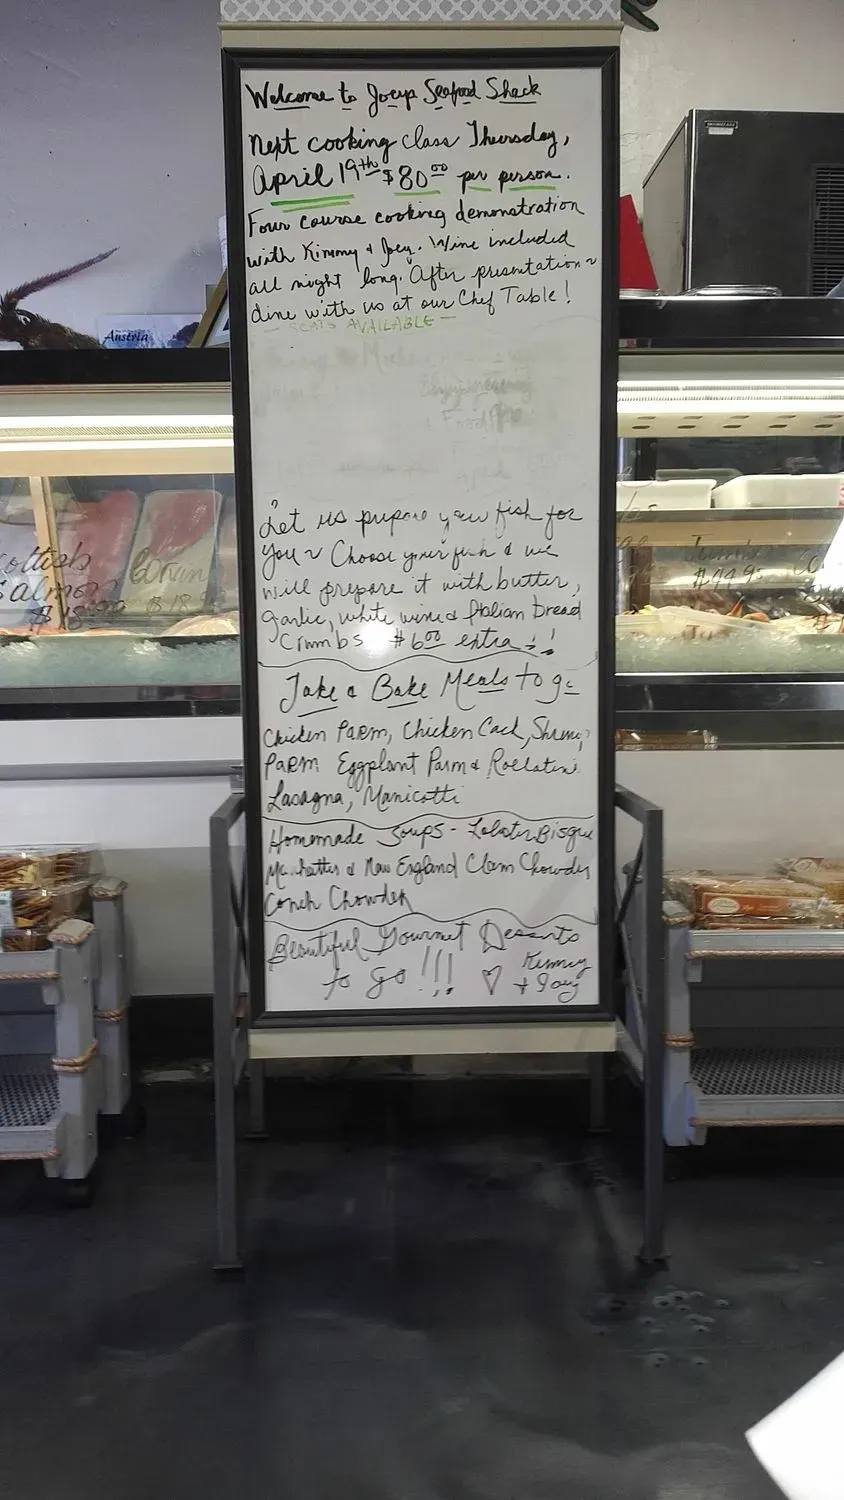 Welcome to Joeys Seafood Shack
Next cooking class Thursday,
April 19th $80.00 per person.
Four course cooking demonstration
with Kimmy & Joey. Wine included
all night long. After presentation~
dine with us at our Chef Table!
— SEATS AVAILABLE —
Let us prepare your fish for
You~ Choose your fish & we
will prepare it with butter,
garlic, white wine & Italian bread
Crumbs $6.00 extra!!
Take & Bake Meals to go
Chicken Parm, Chicken Cacl, Shrimp
Parm Eggplant Parm & Rollatini
Lasagna, Manicotti
Homemade Soups - Lobster Bisque
Manhatten & New England Clam Chowder
Conch Chowder
Beautiful Gourmet Desserts
to go!!! Kimmy
& Joey
Austria
Scottish
Salmon